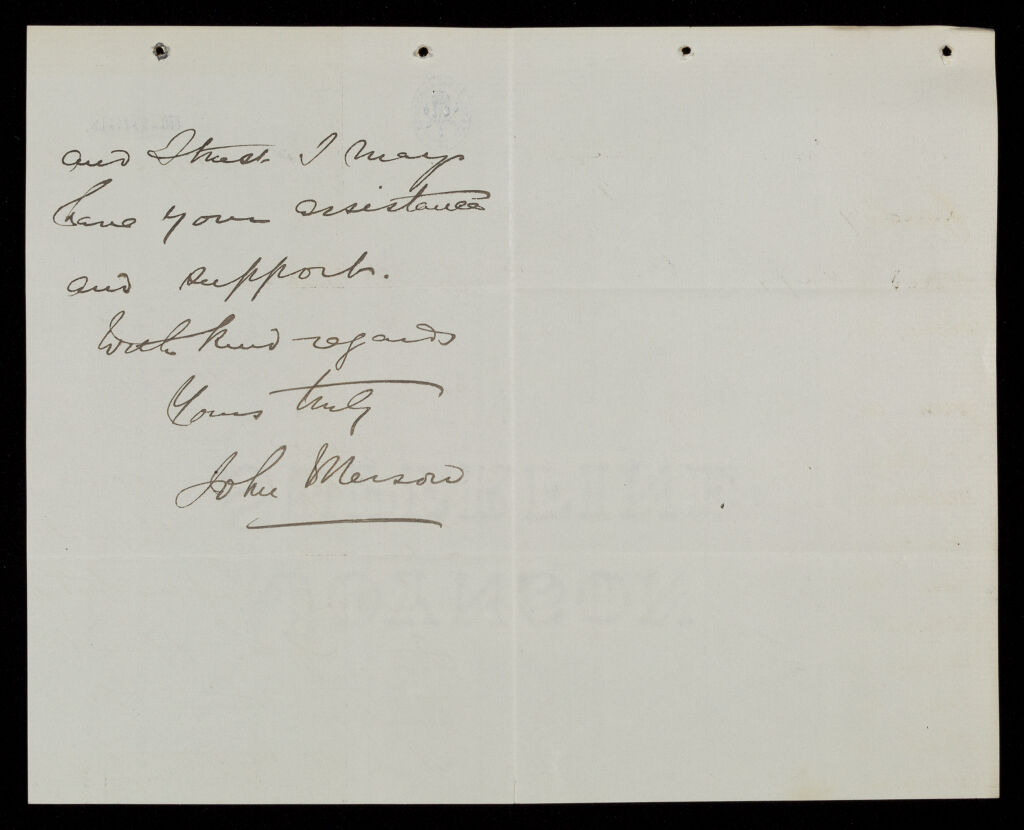 and I trust I may
have your assistance
and support.
With kind regards
Yours truly
John Merson